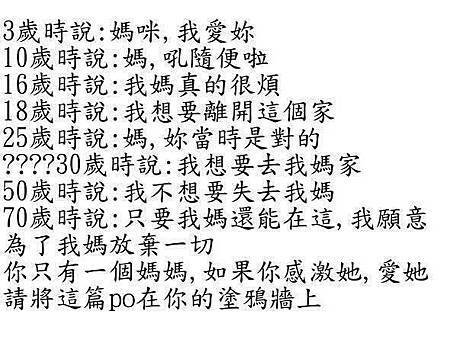 3歲時說:媽咪,我愛妳
10歲時說:媽,吼隨便啦
16歲時說:我媽真的很煩
18歲時說:我想要離開這個家
25歲時說:媽,妳當時是對的
????30歲時說:我想要去我媽家
50歲時說:我不想要失去我媽
70歲時說:只要我媽還能在這,我願意
為了我媽放棄一切
你只有一個媽媽,如果你感激她,愛她
請將這篇po在你的塗鴉牆上